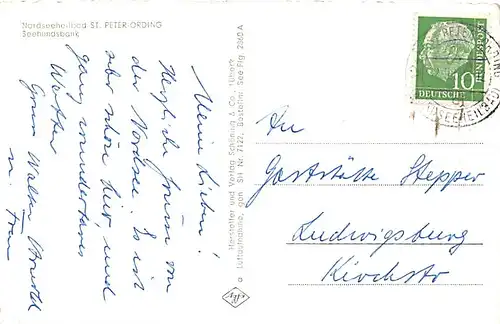 Nordseeheilbad ST. PETER-ORDING
Seehundsbank
Meine Lieben!
Herzliche Grüsse von
der Nordsee. Es ist
sehr schön hier, und
ganz wunderbares
Wetter.
Gruss Walter
u. Frau
Hersteller und Verlag Schöning & Co., Lübeck
Luftaufnahme, gen. SH Nr. Bestellnr. See Flg 2360 A
DEUTSCHE
BUNDESPOST
10
NORDSEEHEILBAD
An
Gaststätte Stepper
Ludwigsburg
Kirchstr